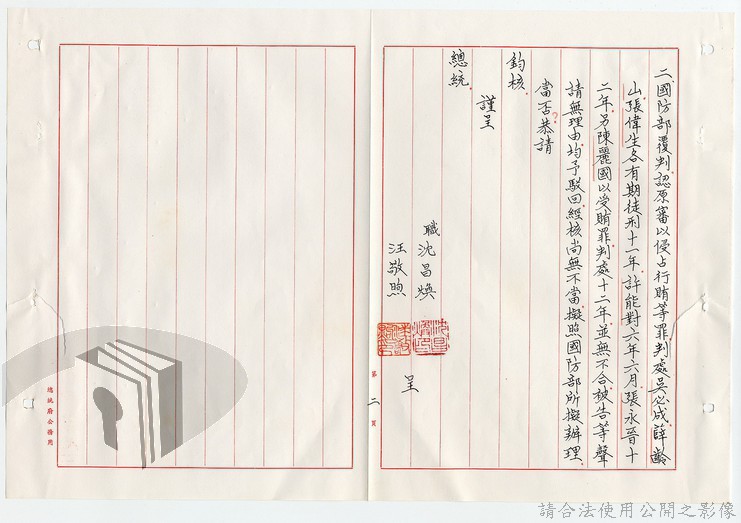 二、國防部覆判認原審以侵占行賄等罪判處吳必成薛齡
山張偉生各有期徒刑十一年許能對六年六月張永晉十
二年另陳麗國以受賄罪判處十二年並無不合被告等聲
請無理由均予駁回經核尚無不當擬照國防部所擬辦理
當否恭請
鈞核
謹呈
總統
職沈昌煥
汪敬煦
呈
第二頁
總統府公務箋
請合法使用公開之影像